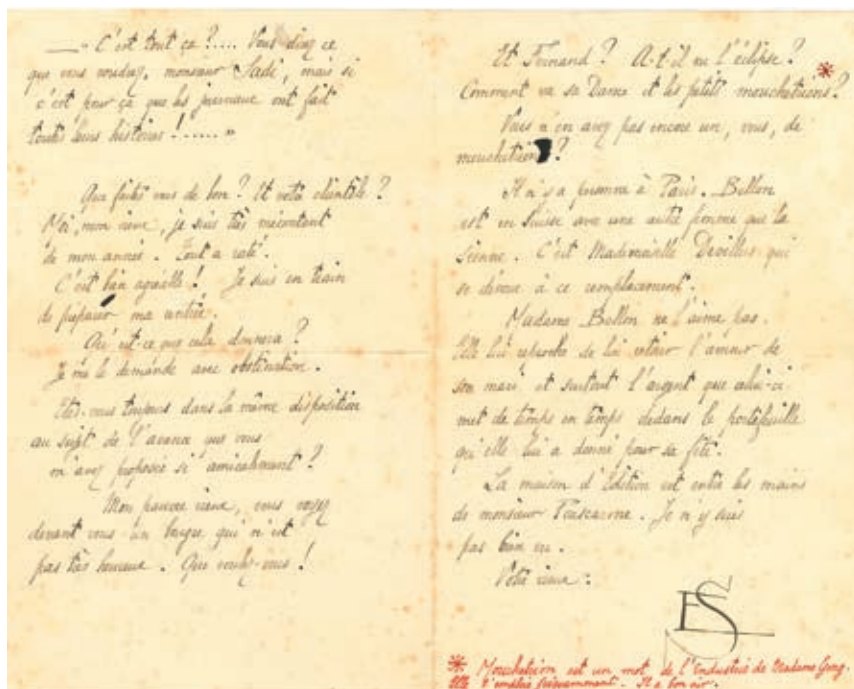 — « C'est tout ça ?.... Vous direz ce
que vous voudrez, monsieur Sadi, mais si
c'est pour ça que les journaux ont fait
toutes leurs histoires !...... »
Que faites vous de bon ? Et votre clientèle ?
Moi, mon vieux, je suis très mécontent
de mon année. Tout a raté.
C'est bien agréable ! Je suis en train
de préparer ma rentrée.
Qu'est-ce que cela donnera ?
Je me le demande avec obstination.
Etes-vous toujours dans la même disposition
au sujet de l'avance que vous
m'avez proposée si amicalement ?
Mon pauvre vieux, vous voyez
devant vous un bougre qui n'est
pas très heureux. Que voulez-vous !
Et Fernand ? A-t-il vu l'éclipse ?
Comment va sa Dame et les petits moucheturons ? *
Vous n'en avez pas encore un, vous, de
moucheturon ?
Il n'y a personne à Paris. Bellon
est en Suisse avec une autre femme que la
sienne. C'est Mademoiselle Deviller qui
se dévoue à ce remplacement.
Madame Bellon ne l'aime pas.
Elle lui reproche de lui retirer l'amour de
son mari et surtout l'argent que celui-ci
met de temps en temps dedans le portefeuille
qu'elle lui a donné pour sa fête.
La maison d'Edition est entre les mains
de monsieur . Je n'y suis
pas bien vu.
Votre vieux :
ES
* Moucheturon est un mot de l'industrie de Madame Gong.
Elle l'emploie fréquemment. Il a bon air.